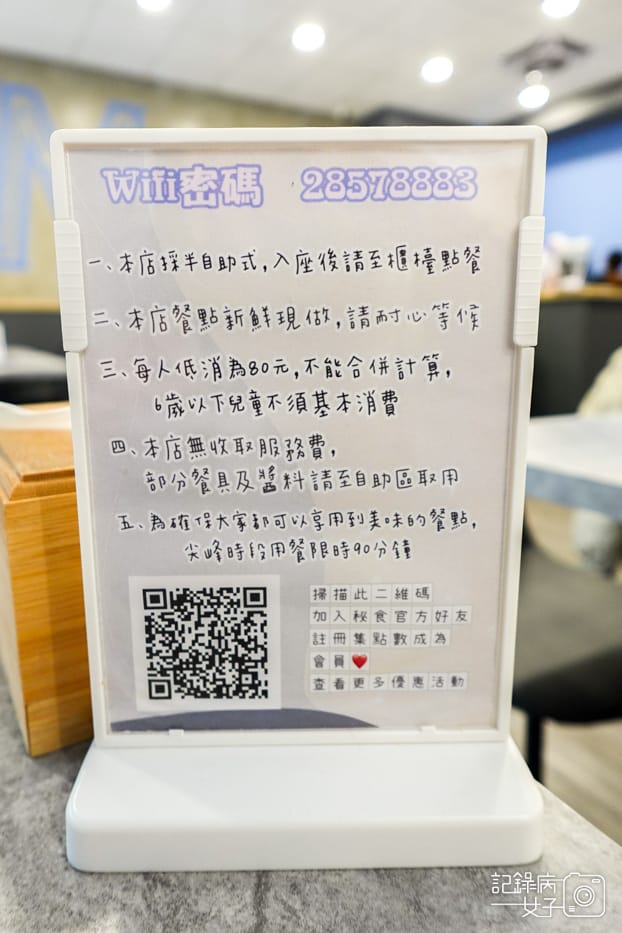 Wifi密碼 28578883
一、本店採半自助式,入座後請至櫃檯點餐
二、本店餐點新鮮現做,請耐心等候
三、每人低消為80元,不能合併計算,
6歲以下兒童不須基本消費
四、本店無收取服務費,
部分餐具及醬料請至自助區取用
五、為確保大家都可以享用到美味的餐點,
尖峰時段用餐限時90分鐘
掃描此二維碼
加入秘食官方好友
註冊集點數成為
會員❤
查看更多優惠活動
記錄病
女子